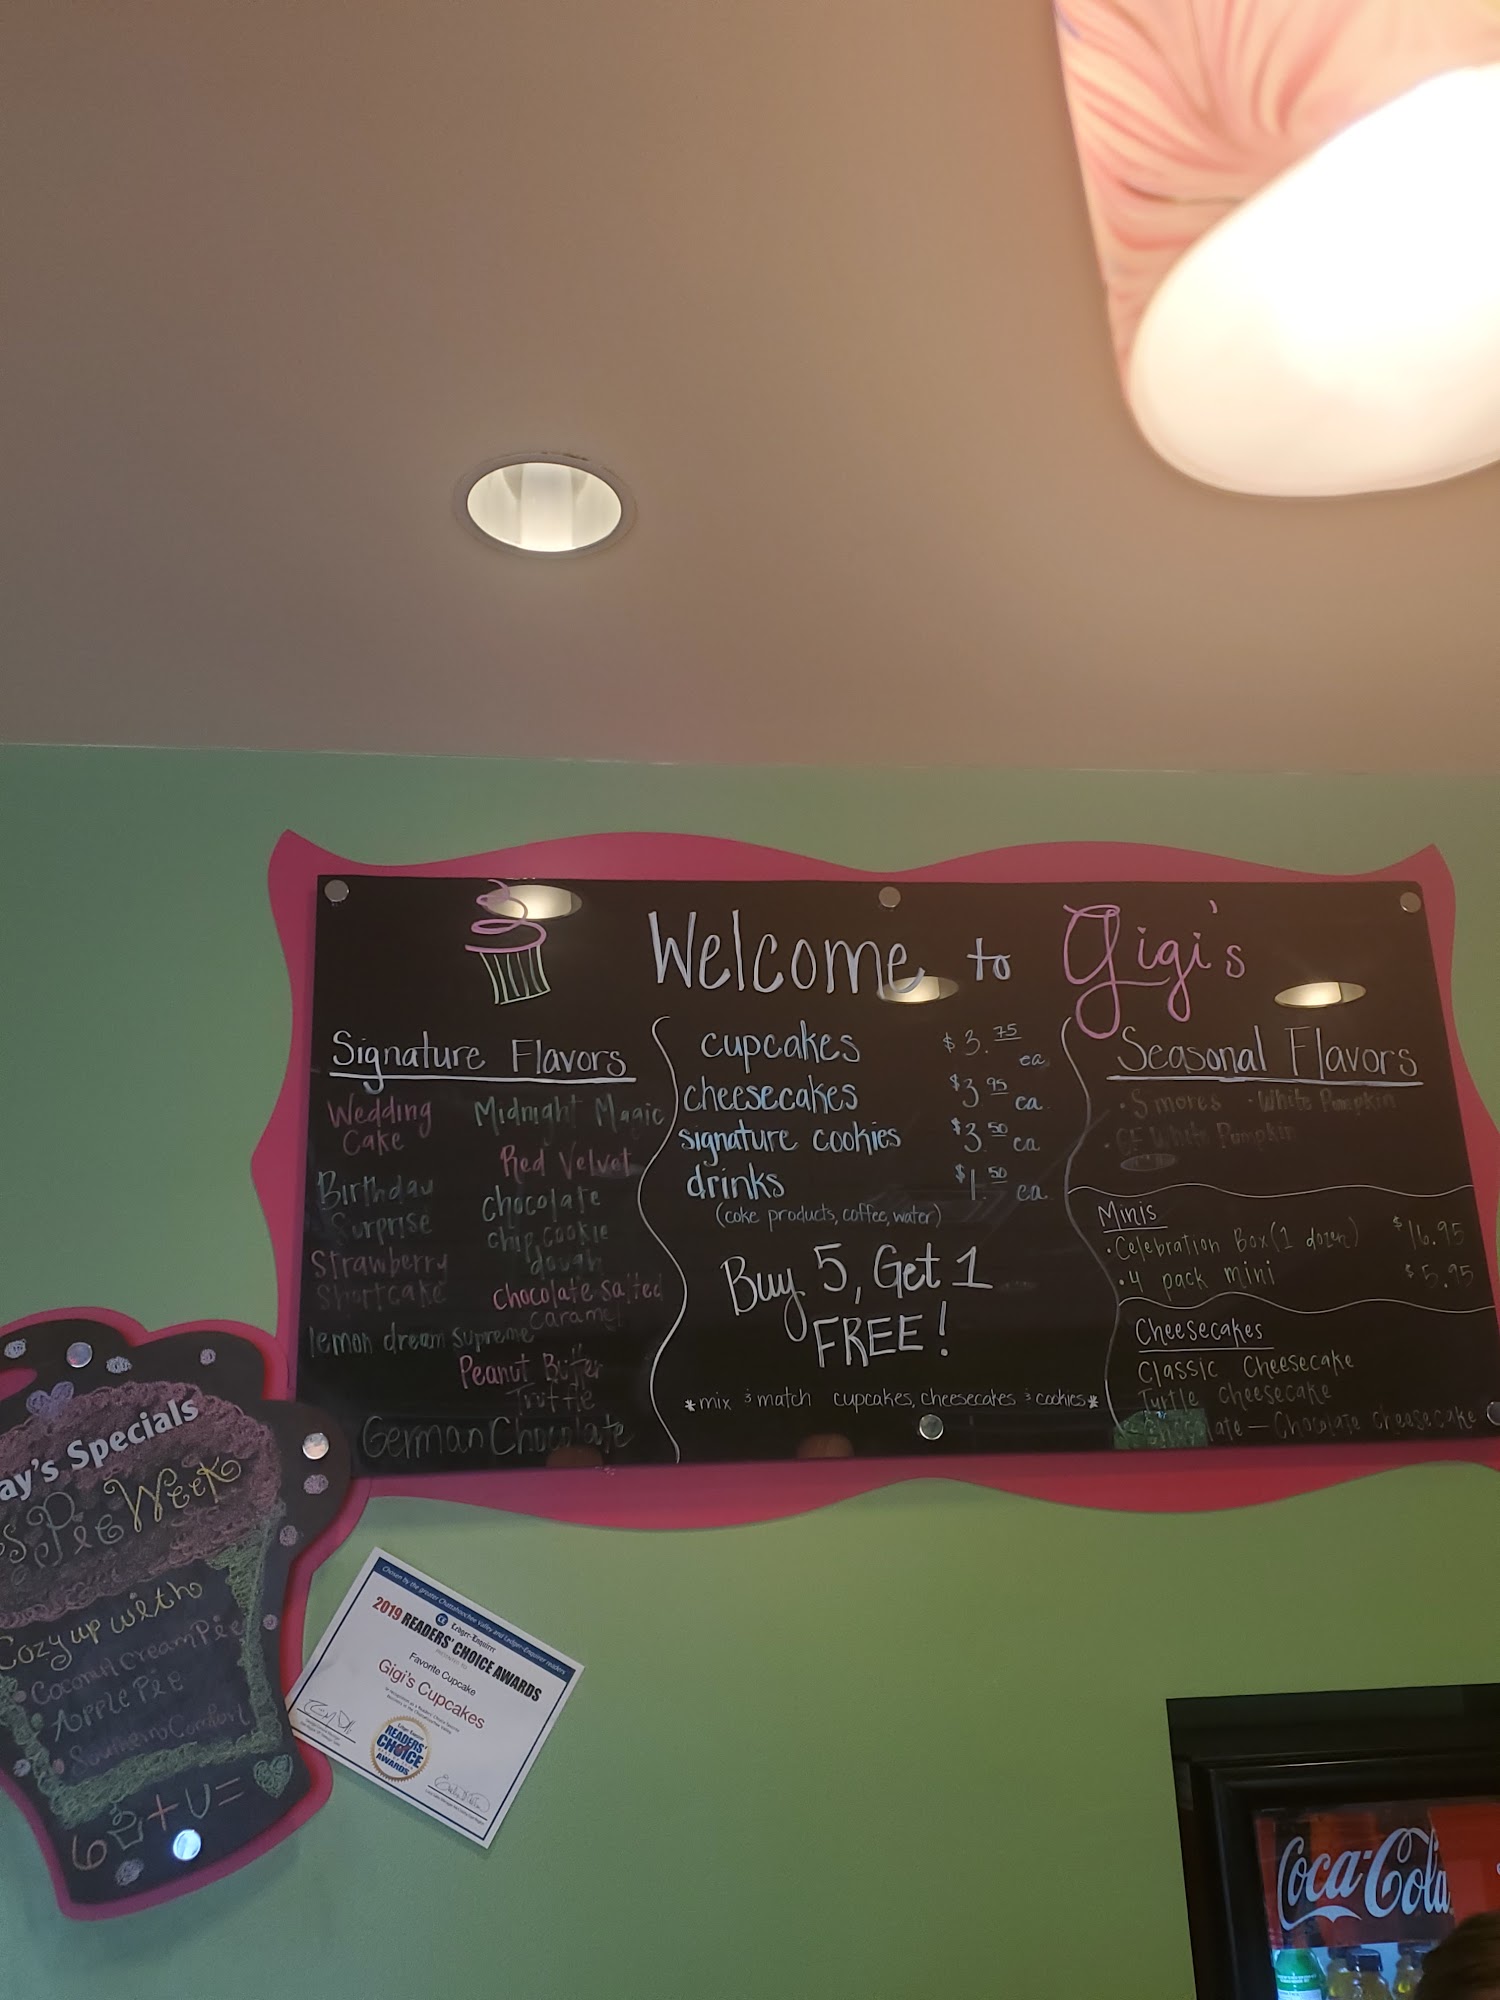 Welcome to Gigi's
Signature Flavors
Wedding
Cake
Birthday
Surprise
Strawberry
Shortcake
lemon dream supreme
Midnight Magic
Red Velvet
chocolate
chip cookie
dough
chocolate salted
caramel
Peanut Butter
Truffle
German Chocolate
cupcakes $3.75 ea
cheesecakes $3.95 ea.
signature cookies $3.50 ea
drinks $1.50 ea
(coke products, coffee, water)
Buy 5, Get 1
FREE!
*mix & match cupcakes, cheesecakes & cookies*
Seasonal Flavors
· Smores · White Pumpkin
· GF White Pumpkin
Minis
· Celebration Box (1 dozen) $16.95
· 4 pack mini $5.95
Cheesecakes
Classic Cheesecake
Turtle Cheesecake
Chocolate - Chocolate cheesecake
ay's Specials
Pie Week
Cozy up with
Coconut Cream Pie
Apple Pie
Southern Comfort
6 + U =
Chosen by the greater Chattahoochee Valley and Ledger-Enquirer readers
Ledger-Enquirer
2019 READERS' CHOICE AWARDS
Favorite Cupcake
Gigi's Cupcakes
Ledger-Enquirer
READERS'
CHOICE
AWARDS
Coca-Cola